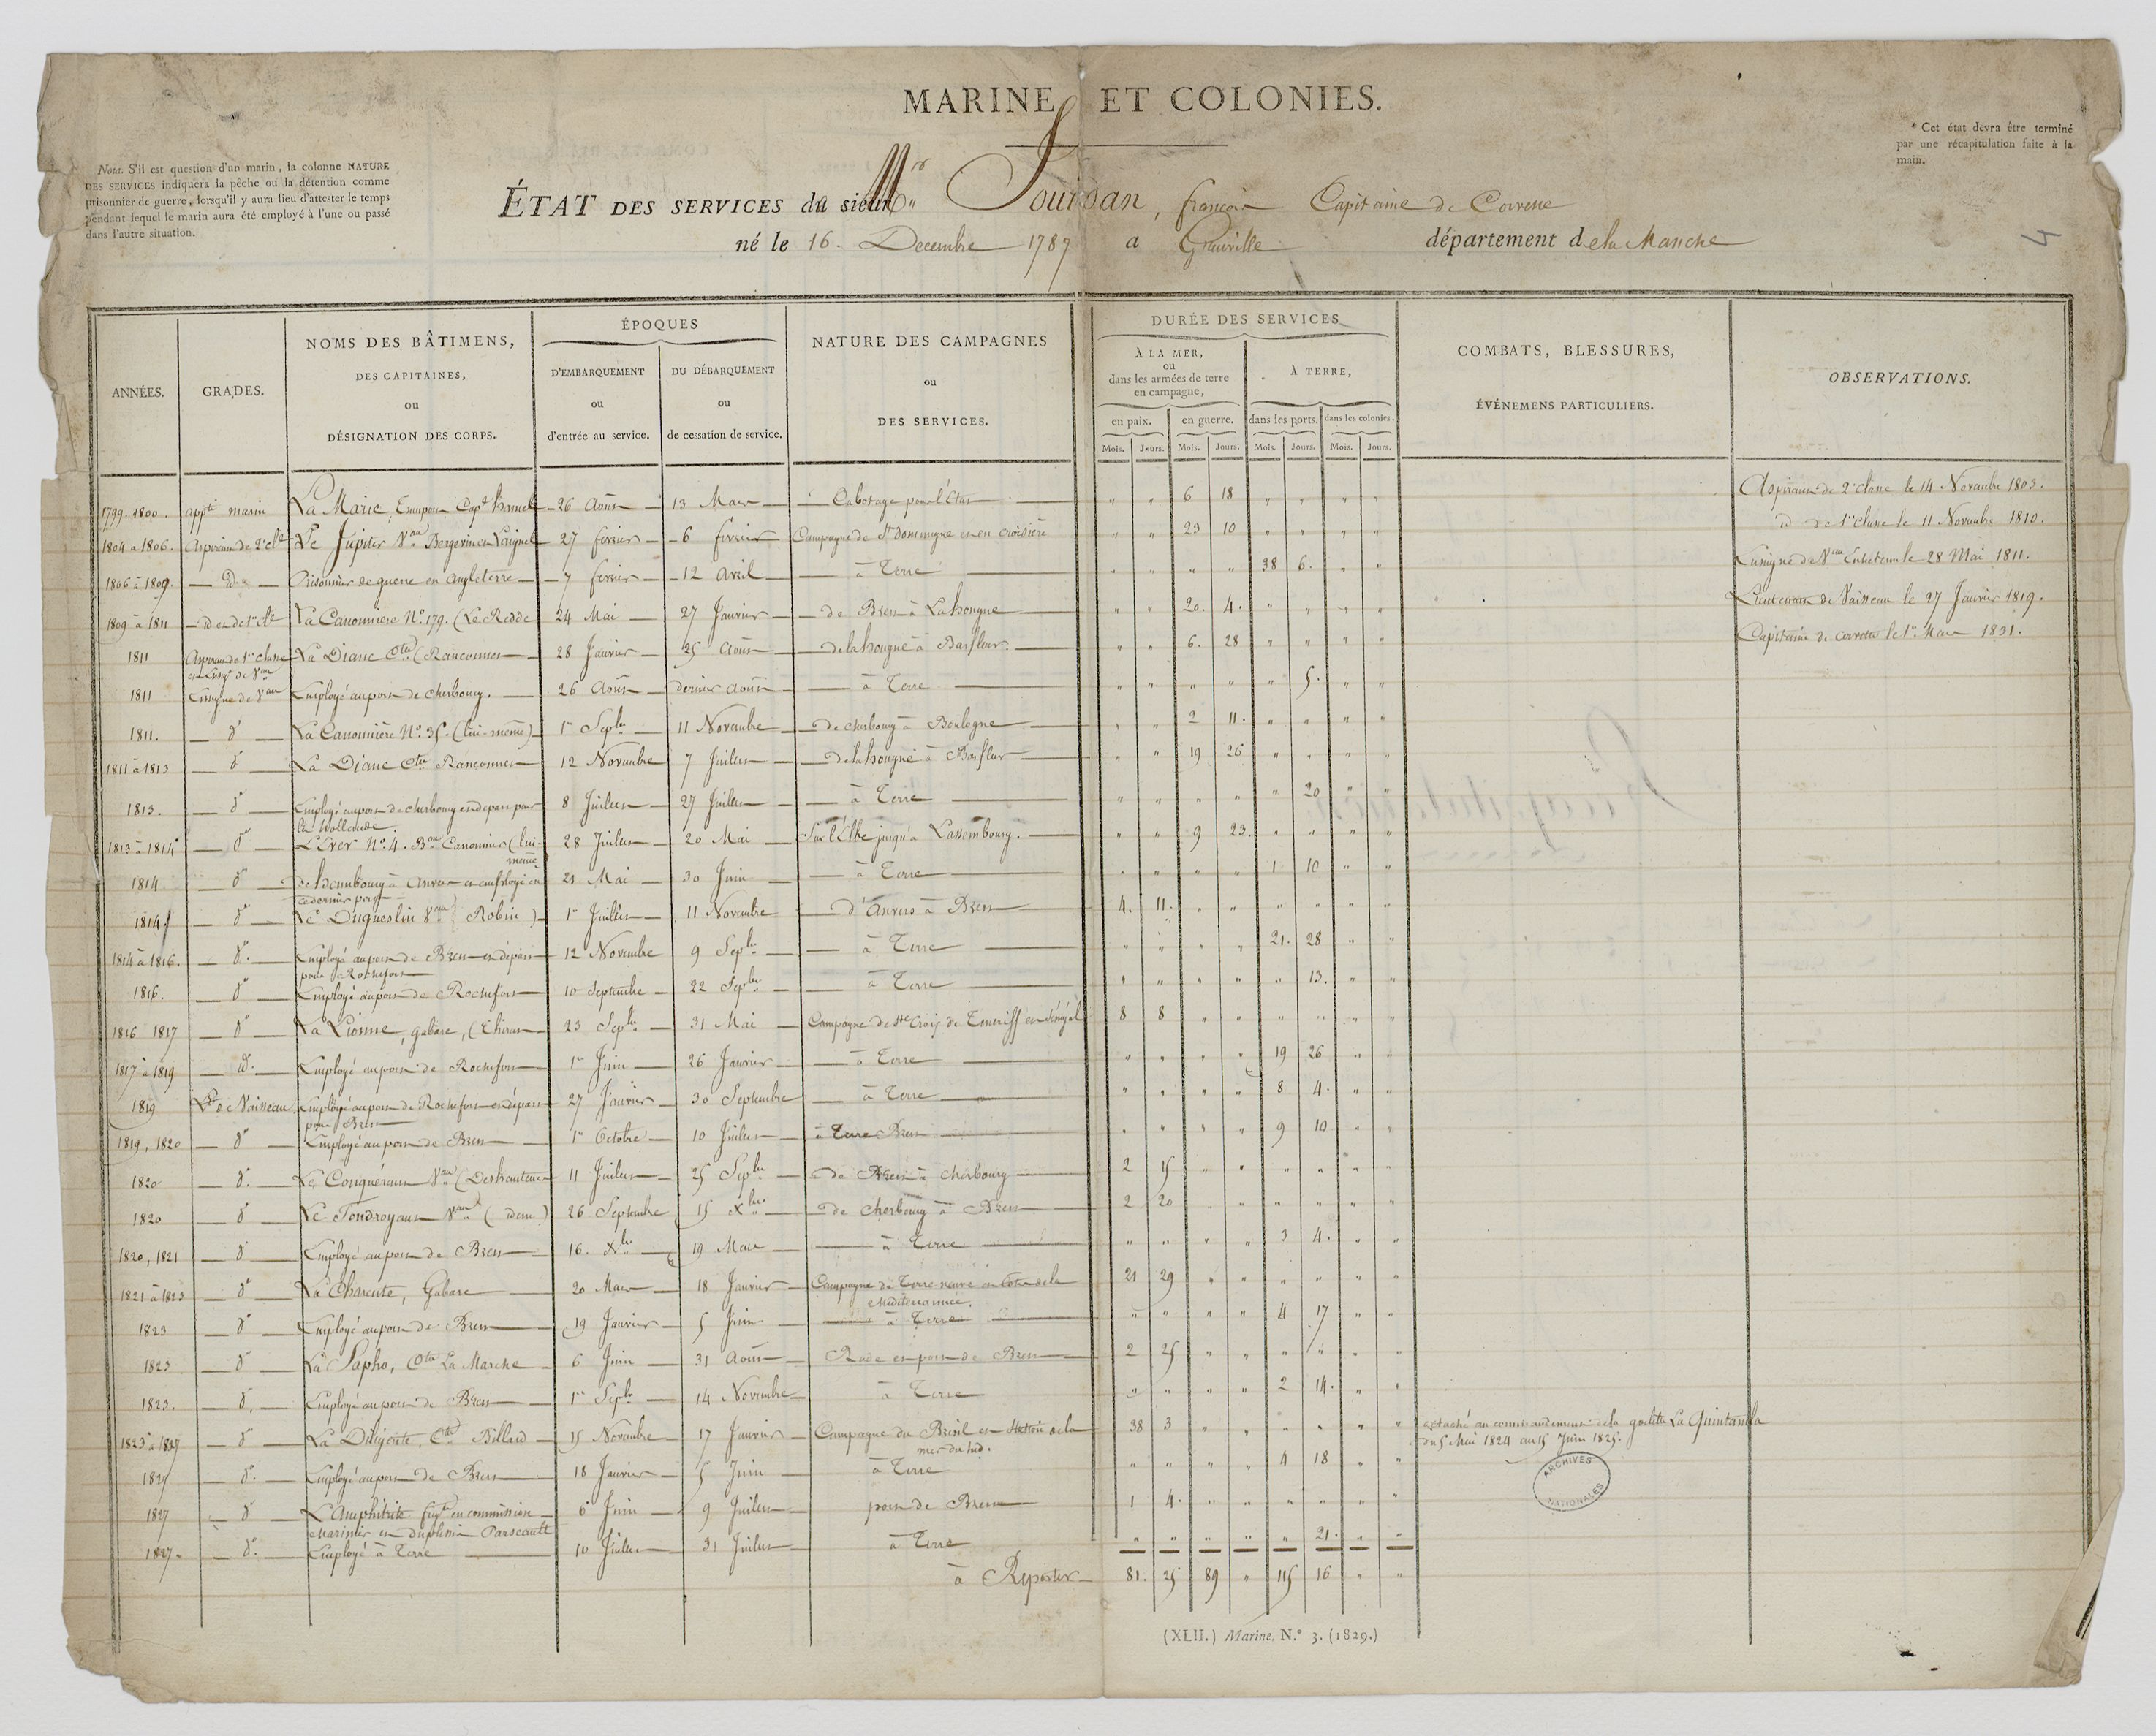 MARINE ET COLONIES.
Nota. S'il est question d'un marin, la colonne NATURE
DES SERVICES indiquera la pêche ou la détention comme
prisonnier de guerre, lorsqu'il y aura lieu d'attester le temps
pendant lequel le marin aura été employé à l'une ou passé
dans l'autre situation.
* Cet état devra être terminé
par une récapitulation faite à la
main.
ÉTAT DES SERVICES du sieur Mr Jourdan, françois Capitaine de Corvette
né le 16. Decembre 1787 a Granville département de la Manche
4
ANNÉES.
GRADES.
NOMS DES BÂTIMENS,
DES CAPITAINES,
ou
DÉSIGNATION DES CORPS.
ÉPOQUES
D'EMBARQUEMENT
ou
d'entrée au service.
DU DÉBARQUEMENT
ou
de cessation de service.
NATURE DES CAMPAGNES
ou
DES SERVICES.
DURÉE DES SERVICES
À LA MER,
ou
dans les armées de terre
en campagne,
À TERRE,
en paix. en guerre. dans les ports. dans les colonies.
Mois. Jours. Mois. Jours. Mois. Jours. Mois. Jours.
COMBATS, BLESSURES,
ÉVÉNEMENS PARTICULIERS.
OBSERVATIONS.
1799. 1800. appti marin La Marie, Capt hamel 26 Août 13 Mars Cabotage pour l'Etat " " 6 18 " " " "
1804 à 1806. Aspirant de 2e clle Le Jupiter Vau Bergevin en Laignel 27 fevrier 6 fevrier Campagne de St domingue et en croisière " " 23 10 " " " "
1806 à 1809. D° Prisonnier de guerre en Angleterre 7 fevrier 12 Avril à Terre " " " " 38 6. " "
1809 à 1811 d et de 1re clle La Canonnière N° 179. (Le Redde 24 Mai 27 Janvier de Brest à La hougue " " 20. 4. " " " "
1811 Aspirant de 1re classe et Ensige de Vau La Diane Ctte (Ranconnet 28 Janvier 25 Août de la hougue à Barfleur " " 6. 28 " " " "
1811 Enseigne de Vau Employé au port de cherbourg. 26 Août dernier Août à Terre " " " " " 5. " "
1811. d° La Canonnière N° 35. (lui-même) 1er Septbre 11 Novembre de cherbourg à Boulogne " " 2 11. " " " "
1811 à 1813 d° La Diane Ctte Ranconnet 12 Novembre 7 Juillet de la hougue à Barfleur " " 19 26 " " " "
1813. d° Employé au port de cherbourg et depart pour
la Hollande. 8 Juillet 27 Juillet à Terre " " " " " 20 " "
1813 à 1814 d° L'Iver N° 4. Bau Canonnier (lui-
même 28 Juillet 20 Mai Sur l'Elbe jusqu'à Lassembourg. " " 9 23. " " " "
1814 d° de hambourg à Anvers et employé en
ce dernier port 21 Mai 30 Juin à Terre " " " " 1 10 " "
1814 d° Le Duguesclin Vau (Robin) 1er Juillet 11 Novembre d'Anvers à Brest 4. 11. " " " " " "
1814 à 1816. d° Employé au port de Brest et départ
pour Rochefort 12 Novembre 9 Septbre à Terre " " " " 21. 28 " "
1816. d° Employé au port de Rochefort 10 Septembre 22 Septbre à Terre " " " " " 13. " "
1816 1817 d° La Lionne, gabare, (Thirat 23 Septbre 31 Mai Campagne de Ste Croix de Teneriff et Sénégal 8 8 " " " " " "
1817 à 1819 d°. Employé au port de Rochefort 1er Juin 26 Janvier à Terre " " " " 19 26 " "
1819 Lt de Vaisseau Employé au port de Rochefort et départ
pour Brest 27 Janvier 30 Septembre à Terre " " " " 8 4. " "
1819, 1820 d° Employé au port de Brest 1er Octobre 10 Juillet à Terre Brest " " " " 9 10 " "
1820 d°. Le Conquérant Vau (Deshouteur 11 Juillet 25 Septbre de Brest à cherbourg 2 15 " " " " " "
1820 d° Le Foudroyant Vau (idem) 26 Septembre 15 Xbre de cherbourg à Brest 2 20 " " " " " "
1820, 1821 d° Employé au port de Brest 16. Xbre 19 Mars à Terre " " " " 3 4. " "
1821 à 1823 d° La Charente, Gabare 20 Mars 18 Janvier Campagne de Terre neuve et côte de la
Méditerrannée. 21 29 " " " " " "
1823 d° Employé au port de Brest 19 Janvier 5 Juin à Terre " " " " 4 17 " "
1823 d° La Sapho, Ctte La Marche 6 Juin 31 Août Rade et port de Brest 2 25 " " " " " "
1823. d°. Employé au port de Brest 1er Septbre 14 Novembre à Terre " " " " 2 14. " "
1823 à 1827 d° La Diligente Ctte Billard 15 Novembre 17 Janvier Campagne du Brésil et Station de la
mer du Sud. 38 3 " " " " " " détaché au commandement de la goelette La Quintanilla
du 5 Mai 1824 au 15 Juin 1825.
1827 d°. Employé au port de Brest 18 Janvier 5 Juin à Terre " " " " 4 18 " "
1827 d° L'Amphitrite frégte en commission
Marinier et Duplessis Parscault 6 Juin 9 Juillet port de Brest 1 4. " " " " " "
1827. d°. Employé à Terre 10 Juillet 31 Juillet à Terre " " " " " 21. " "
à Reporter 81. 25 89 " 115 16 " "
Aspirant de 2e classe le 14 Novembre 1803.
d de 1re classe le 11 Novembre 1810.
Enseigne de Vau Entretenu le 28 Mai 1811.
Lieutenant de Vaisseau le 27 Janvier 1819.
Capitaine de corvette le 1er Mars 1831.
ARCHIVES
NATIONALES
(XLII.) Marine. N.° 3. (1829.)